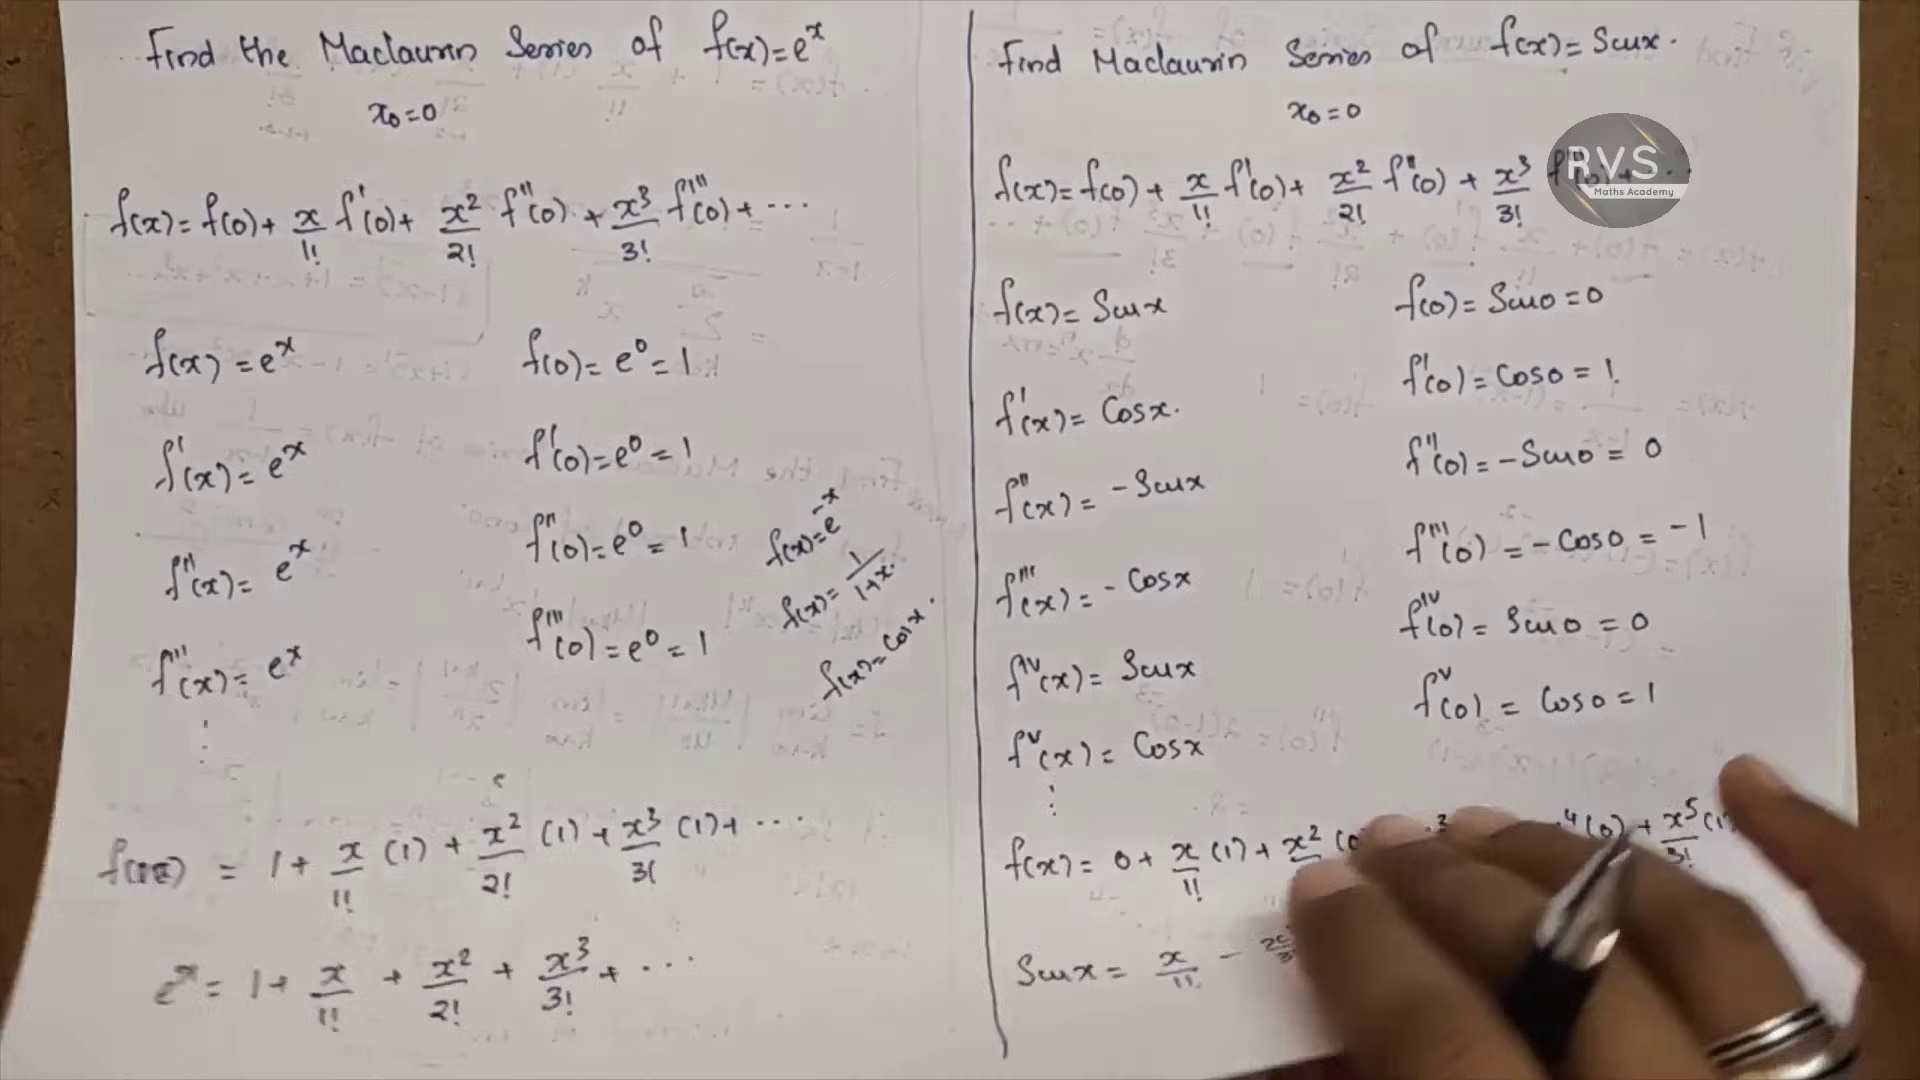 Find the Maclaurin Series of f(x)=e^x
x₀=0
f(x)=f(0)+ x/1! f'(0)+ x²/2! f''(0) + x³/3! f'''(0)+ ...
f(x)=e^x f(0)=e⁰=1
f'(x)=e^x f'(0)=e⁰=1
f''(x)= e^x f''(0)=e⁰=1
f'''(x)= e^x f'''(0)=e⁰=1
f(x)=e^-x
f(x)= 1/1+x.
f(x)=cosx.
f(x) = 1+ x/1! (1) + x²/2! (1)+ x³/3! (1)+ ...
e^x = 1+ x/1! + x²/2! + x³/3! + ...
Find Maclaurin Series of f(x)=Sinx.
x₀=0
f(x)=f(0)+ x/1! f'(0)+ x²/2! f''(0) + x³/3! f'''(0)+ ...
RVS
Maths Academy
f(x)= Sinx f(0)=Sin0=0
f'(x)= Cosx. f'(0)=Cos0=1
f''(x)= -Sinx f''(0)=-Sin0=0
f'''(x)= -Cosx f'''(0)=-Cos0=-1
f^IV(x)= Sinx f^IV(0)=Sin0=0
f^V(x)= Cosx f^V(0)= Cos0=1
f(x)= 0+ x/1! (1)+ x² (0 ⁴(0)+ x⁵/3! (1)
Sinx= x/1! -